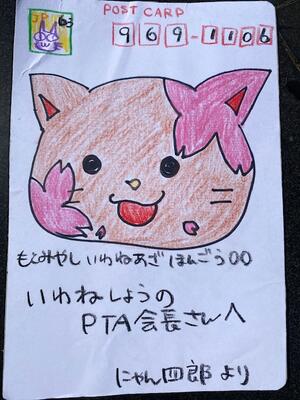 JP 63
POST CARP
969-1106
もとみやし いわねあざ ほんごう〇〇
いわねしょうの
PTA会長さんへ
にゃん四郎 より